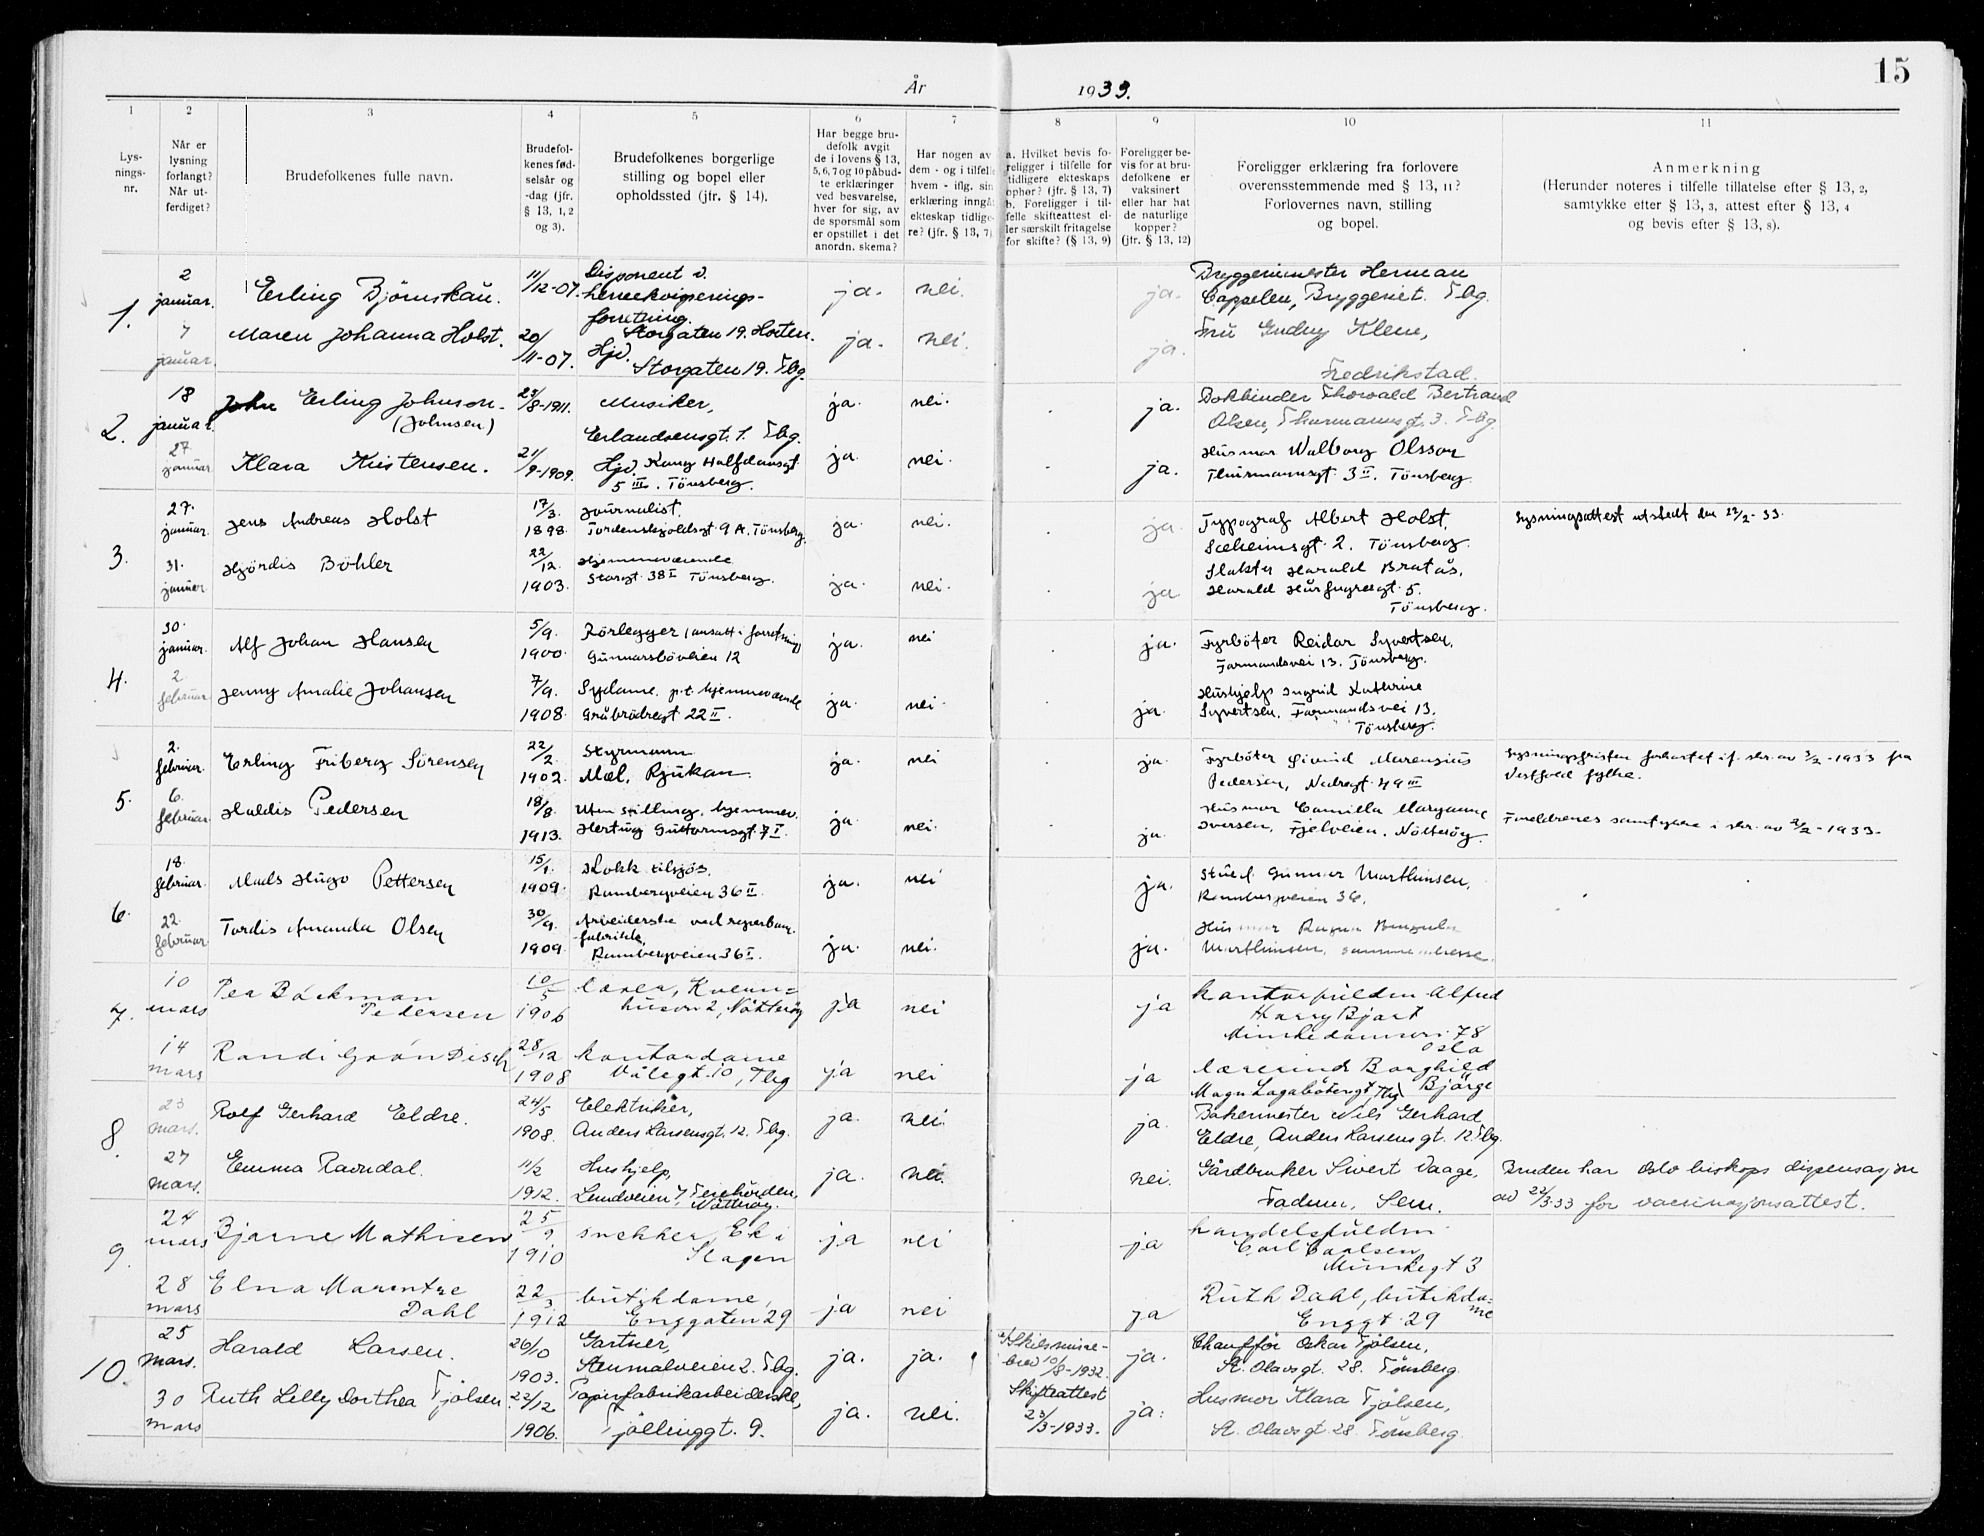 15
År 1933.
1 2 3 4 5 6 7 8 9 10 11
Lys-
nings-
nr.
Når er
lysning
forlangt?
Når ut-
ferdiget?
Brudefolkenes fulle navn.
Brudefol-
kenes fød-
selsår og
-dag (jfr.
§ 13, 1, 2
og 3).
Brudefolkenes borgerlige
stilling og bopel eller
opholdssted (jfr. § 14).
Har begge bru-
defolk avgit
de i lovens § 13,
5, 6, 7 og 10 påbud-
te erklæringer
ved besvarelse,
hver for sig, av
de spørsmål som
er opstillet i det
anordn. skema?
Har nogen av
dem - og i tilfelle
hvem - iflg. sin
erklæring inngått
ekteskap tidlige-
re? (jfr. § 13, 7)
a. Hvilket bevis fo-
religger i tilfelle for
tidligere ekteskaps
ophør? (jfr. § 13, 7)
b. Foreligger i til-
felle skifteattest el-
ler særskilt fritagelse
for skifte? (§ 13, 9)
Foreligger be-
vis for at bru-
defolkene er
vaksinert
eller har hat
de naturlige
kopper?
(jfr. § 13, 12)
Foreligger erklæring fra forlovere
overensstemmende med § 13, 11?
Forlovernes navn, stilling
og bopel.
Anmerkning
(Herunder noteres i tilfelle tillatelse efter § 13, 2,
samtykke efter § 13, 3, attest efter § 13, 4
og bevis efter § 13, 8).
1. 2 januar. Erling Björnskau. 11/12-07. Disponent v.
herreekviperings-
forretning.
Storgaten 19. Horten. ja. nei. ja. Bryggerimester Herman
Cappelen, Bryggeriet. Tbg.
7 januar. Maren Johanna Holst. 20/11-07. Hjv.
Storgaten 19. Tbg. ja. nei. ja. Fru Gudny Klem,
Fredrikstad.
2. 18 januar. Erling Johnson.
(Johnsen) 23/8-1911. Musiker,
Erlandsensgt. 1. Tbg. ja. nei. ja. Bokbinder Thorvald Bertrand
Olsen, Thurmannsgt. 3. Tbg.
27 januar Klara Kristensen. 21/9-1909. Hjv. Kong Halfdansgt.
5 III. Tönsberg. ja. nei. ja. Husmor Walborg Olsson
Thurmannsgt. 3 II. Tönsberg
3. 27. januar. Jens Andreas Holst 17/3. 1898. Journalist.
Tordenskjoldsgt. 9 A. Tönsberg. ja. nei. ja. Typograf Albert Holst.
Sæheimsgt. 2. Tönsberg. Lysningsattest utstedt den 22/2-33.
31. januar. Hjördis Böhler 22/12. 1903. Hjemmeværende
Storgt. 38 I Tönsberg. ja. nei. ja Slakter Harald Bratås,
Harald Hårfagresgt. 5.
Tönsberg.
4. 30. januar. Alf Johan Hansen 5/9. 1900. Rörlegger (ansatt i forretning)
Gunnarsböveien 12 ja. nei ja. Fyrböter Reidar Syvertsen,
Farmandsvei 13. Tönsberg.
2. februar Jenny Amalie Johansen 7/9. 1908. Sydame, p.t. hjemmeværende
Gråbrödregt 22 II. ja. nei. ja. Hushjelp Ingrid Kathrine
Syvertsen, Farmandsvei 13.
Tönsberg.
5. 2. februar. Erling Friberg Sörensen 22/2. 1902. Styrmann
Mæl, Rjukan. ja. nei ja. Fyrböter Eivind Marensius
Pedersen, Nedregt 49 III Lysningsfristen forkortet if. skr. av 3/2-1933 fra
Vestfold fylke.
6. februar. Haldis Pedersen 18/8. 1913. Uten stilling, hjemmev.
Hertug Guttormsgt. 7 I. ja. nei. ja. Husmor Camilla Maryanne
Iversen, Fjelveien, Nötteröy. Foreldrenes samtykke i skr. av 2/2-1933.
6. 18. februar. Mads Hugo Pettersen 15/1. 1909. Kokk tilsjös.
Rambergveien 36 II. ja. nei ja. Stud. Gunnar Marthinsen,
Rambergveien 36.
22. februar. Tordis Amanda Olsen 30/9. 1909. Arbeiderske ved reperban-
fabrikk,
Rambergveien 36 I. ja. nei. ja. Husmor Ragna
Marthinsen, samme adresse.
7. 10 mars Per Bäckman
Pedersen 10/5 1906 lærer,
Nötteröy ja nei ja kontorfuldm. Alfred
Harry Bjart
Munkedamsvei 78
Oslo
14 mars Randi Grön Disch 28/12 1908 kontordame
Vålegt. 10, Tbg ja nei ja lærerinde Borghild
Bjørge
Magn. Lagabötersgt Tbg
8. 23 mars. Rolf Gerhard Eldre. 24/5 1908. Elektriker,
Anders Larsensgt. 12. Tbg. ja. nei. ja. Bakermester Nils Gerhard
Eldre, Anders Larsensgt. 12 Tbg.
27 mars. Emma Ravndal. 11/2 1912. Hushjelp,
Lundveien 7, Teiehöiden,
Nötteröy. ja. nei. nei. Gårdbruker Sivert Vaage,
Fadum, Sem. Bruden har Oslo biskops dispensasjon
av 22/3.33 for vaccinasjonsattest.
9. 24 mars Bjarne Mathisen 25/9 1910 snekker, Ek i
Slagen ja nei ja handelsfuldm.
Carl Carlsen
Munkegt 3
28 mars Elna Marentze
Dahl 22/3 1912 butikdame,
Enggaten 29 ja nei ja Ruth Dahl, butikda-
me
Enggt. 29
10. 25 mars. Harald Larsen. 26/10 1903. Gartner,
Stenmalveien 2. Tbg. ja. ja. Skilsmisse-
brev 10/8-1932. ja. Chaufför Oskar Fjölsen,
St. Olavsgt. 28. Tönsberg.
30 mars Ruth Lilly Dorthea Fjölsen. 22/12 1906. Papirfabrikarbeiderske,
Fjöllinggt. 9. ja. nei. Skifteattest
23/3-1933. ja. Husmor Klara Fjölsen,
St. Olavsgt. 28. Tönsberg.